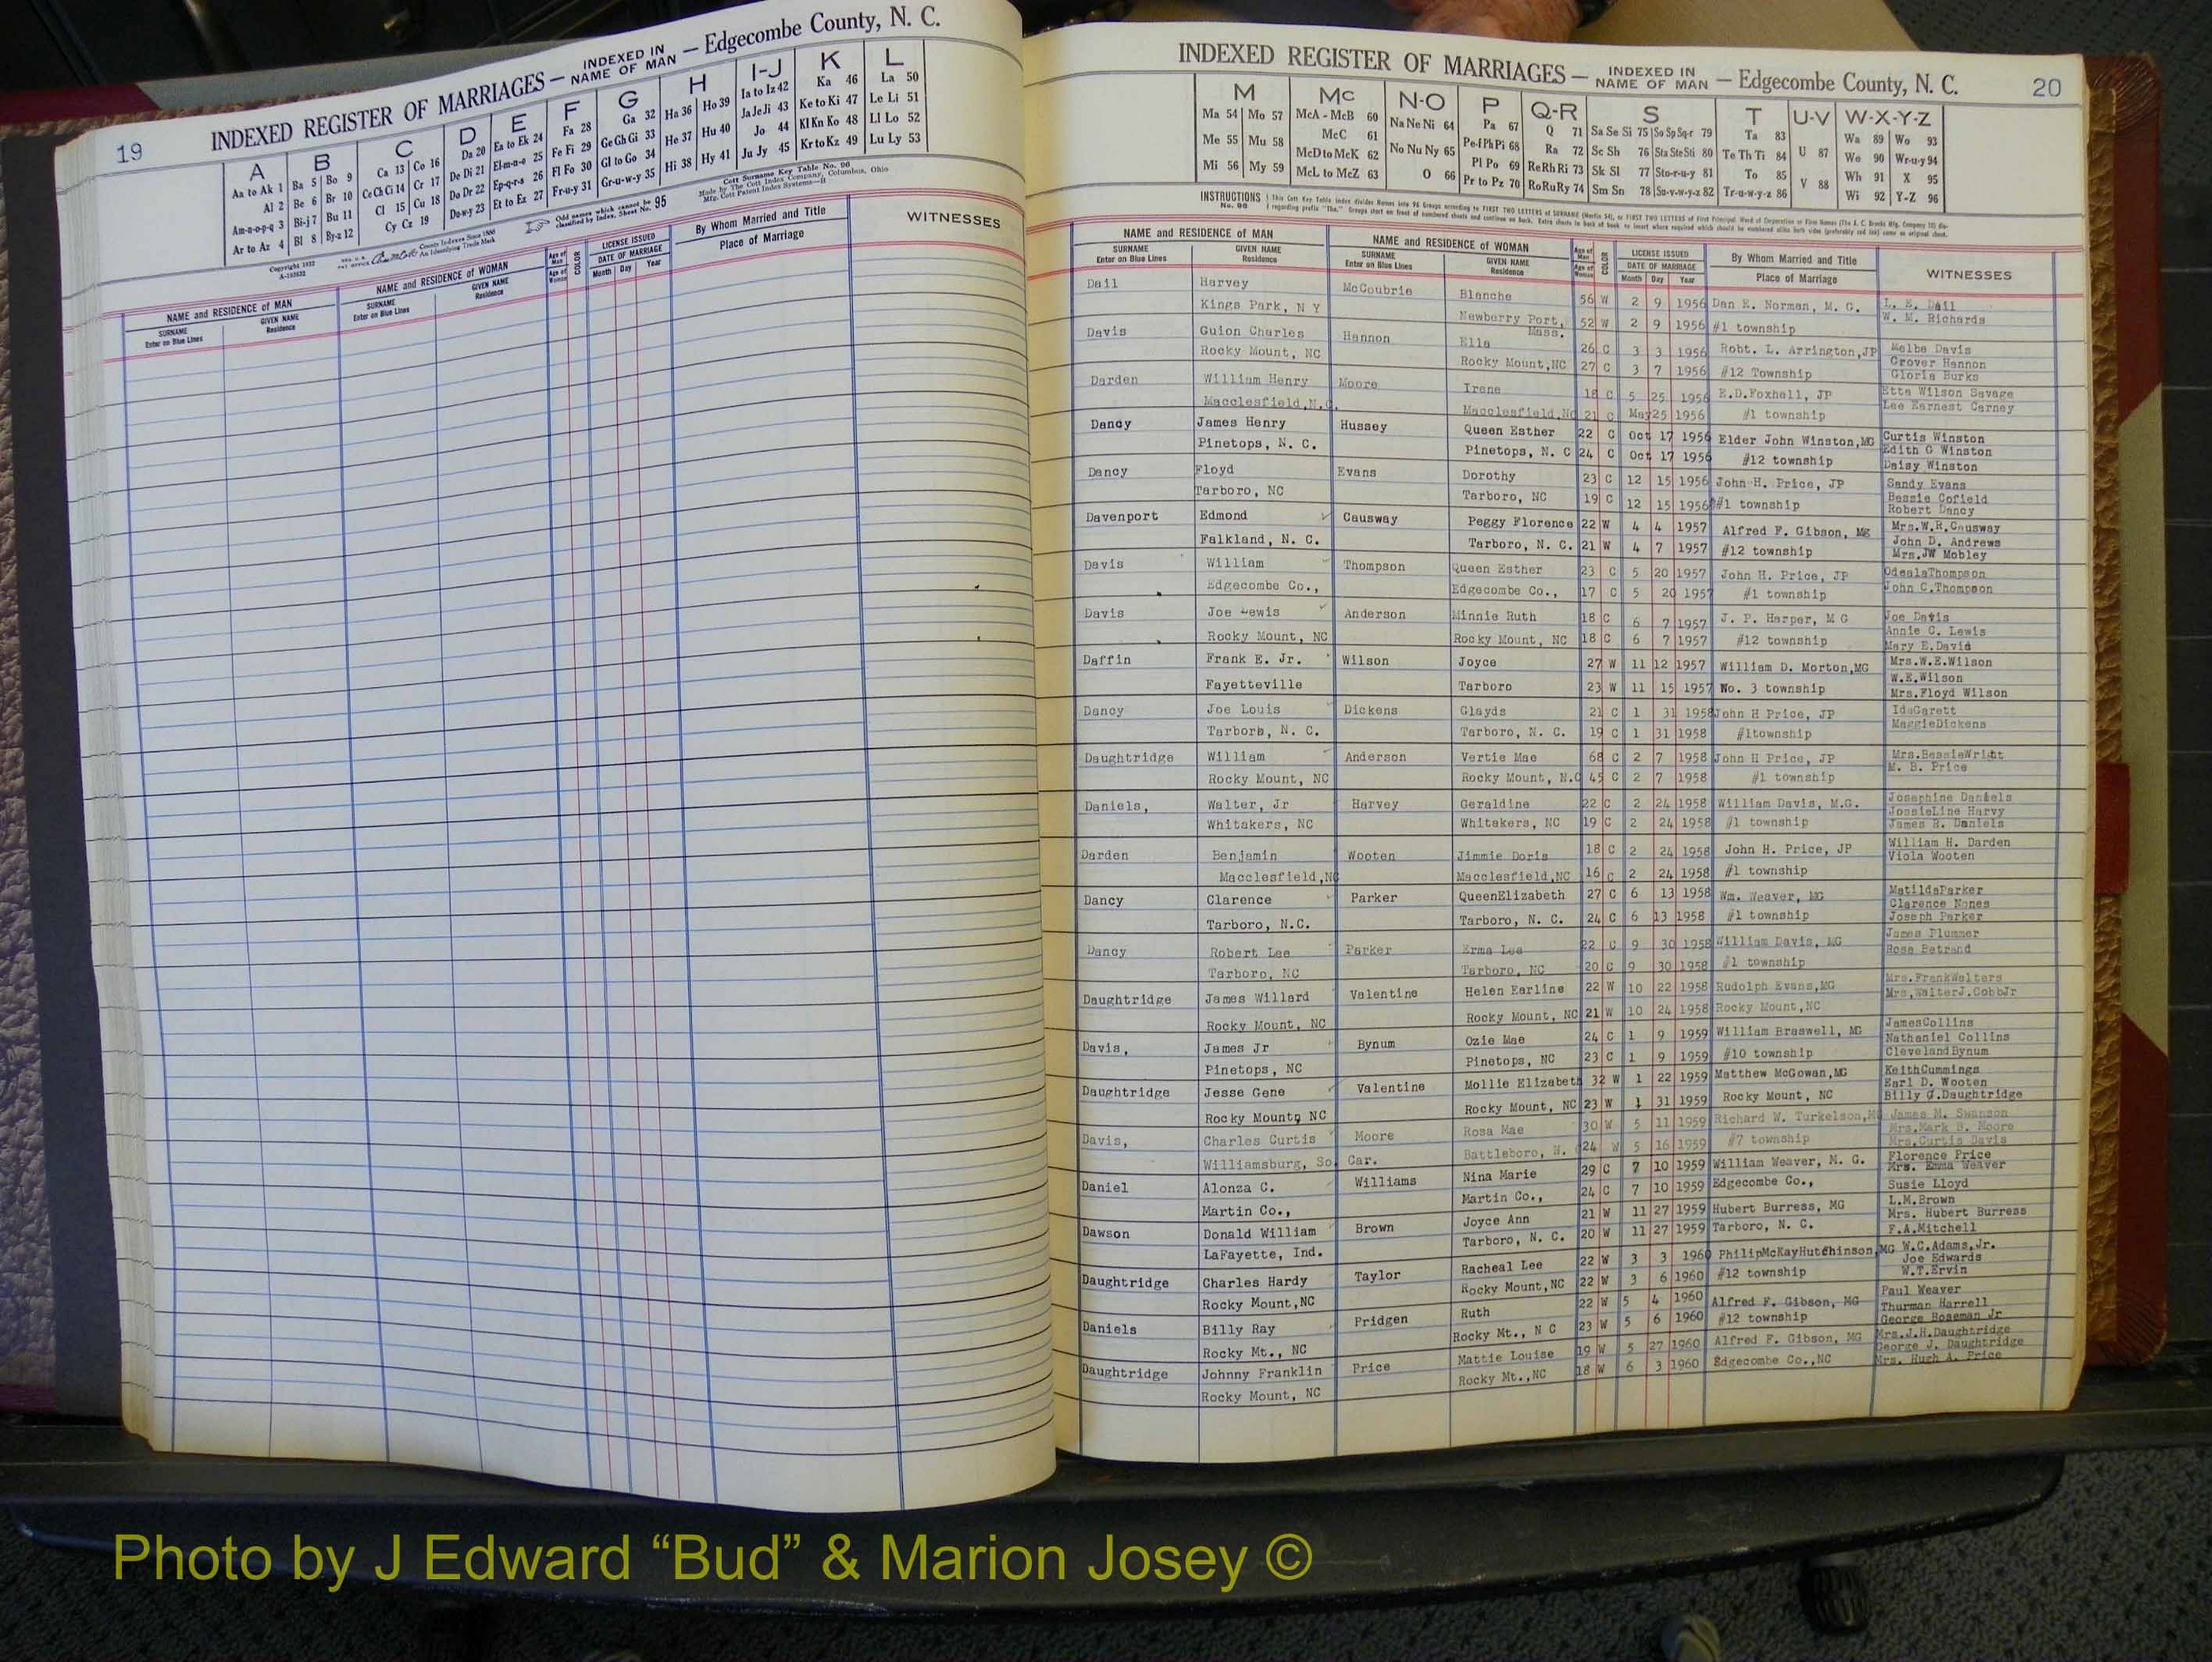 19
INDEXED REGISTER OF MARRIAGES — INDEXED IN NAME OF MAN — Edgecombe County, N. C.
A B C D E F G H I-J K L
Aa to Ak 1 Ba 5 Bo 9 Ca 13 Co 16 Da 20 Ea to Ek 24 Fa 28 Ga 32 Ha 36 Ho 39 Ia to Iz 42 Ka 46 La 50
Al 2 Be 6 Br 10 Ce Ch Ci 14 Cr 17 De Di 21 El-m-n-o 25 Fe Fi 29 Ge Gh Gi 33 He 37 Hu 40 Ja Je Ji 43 Ke to Ki 47 Le Li 51
Am-n-o-p-q 3 Bi-j 7 Bu 11 Cl 15 Cu 18 Do Dr 22 Ep-q-r-s 26 Fl Fo 30 Gl to Go 34 Hi 38 Hy 41 Jo 44 Kl Kn Ko 48 Ll Lo 52
Ar to Az 4 Bl 8 By-z 12 Cy Cz 19 Du-w-y 23 Et to Ez 27 Fr-u-y 31 Gr-u-w-y 35 Ju Jy 45 Kr to Kz 49 Lu Ly 53
Odd names which cannot be classified by Index, Sheet No. 95
Cott Surname Key Table No. 96
Made by The Cott Index Company, Columbus, Ohio
Mfg. Cott Patent Index Systems—B
Copyright 1932
A-102633
County Indexes Since 1888
An Identifying Trade Mark
NAME and RESIDENCE of MAN NAME and RESIDENCE of WOMAN Age of Man Age of Woman COLOR LICENSE ISSUED DATE OF MARRIAGE By Whom Married and Title WITNESSES
SURNAME Enter on Blue Lines GIVEN NAME Residence SURNAME Enter on Blue Lines GIVEN NAME Residence Month Day Year Place of Marriage
INDEXED REGISTER OF MARRIAGES — INDEXED IN NAME OF MAN — Edgecombe County, N. C. 20
M Mc N-O P Q-R S T U-V W-X-Y-Z
Ma 54 Mo 57 McA - McB 60 Na Ne Ni 64 Pa 67 Q 71 Sa Se Si 75 So Sp Sq-r 79 Ta 83 U 87 Wa 89 Wo 93
Me 55 Mu 58 McC 61 No Nu Ny 65 Pe-f Ph Pi 68 Ra 72 Sc Sh 76 Sta Ste Sti 80 Te Th Ti 84 V 88 We 90 Wr-u-y 94
Mi 56 My 59 McD to McK 62 O 66 Pl Po 69 Re Rh Ri 73 Sk Sl 77 Sto-r-u-y 81 To 85 Wh 91 X 95
McL to McZ 63 Pr to Pz 70 Ro Ru Ry 74 Sm Sn 78 Su-v-w-y-z 82 Tr-u-w-y-z 86 Wi 92 Y-Z 96
INSTRUCTIONS No. 96
NAME and RESIDENCE of MAN NAME and RESIDENCE OF WOMAN Age of Man Age of Woman COLOR LICENSE ISSUED DATE OF MARRIAGE By Whom Married and Title WITNESSES
SURNAME Enter on Blue Lines GIVEN NAME Residence SURNAME Enter on Blue Lines GIVEN NAME Residence Month Day Year Place of Marriage
Dail Harvey McGoubrie Blanche 56 W 2 9 1956 Dan E. Norman, M. G. L. E. Dail
Kings Park, N Y Newberry Port, Mass. 52 W 2 9 1956 #1 township W. M. Richards
Davis Guion Charles Hannon Ella 26 C 3 3 1956 Robt. L. Arrington,JP Melba Davis
Grover Hannon
Rocky Mount, NC Rocky Mount,NC 27 C 3 7 1956 #12 Township Gloria Burks
Darden William Henry Moore Irene 18 C 5 25 1956 E.D.Foxhall, JP Etta Wilson Savage
Macclesfield,N.C. Macclesfield,NC 21 C May 25 1956 #1 township Lee Earnest Carney
Dancy James Henry Hussey Queen Esther 22 C Oct 17 1956 Elder John Winston,MG Curtis Winston
Edith G Winston
Pinetops, N. C. Pinetops, N. C 24 C Oct 17 1956 #12 township Daisy Winston
Dancy Floyd Evans Dorothy 23 C 12 15 1956 John H. Price, JP Sandy Evans
Bessie Cofield
Tarboro, NC Tarboro, NC 19 C 12 15 1956 #1 township Robert Dancy
Davenport Edmond Causway Peggy Florence 22 W 4 4 1957 Alfred F. Gibson, MG Mrs.W.R.Causway
John D. Andrews
Falkland, N. C. Tarboro, N. C. 21 W 4 7 1957 #12 township Mrs.JW Mobley
Davis William Thompson Queen Esther 23 C 5 20 1957 John H. Price, JP OdealaThompson
Edgecombe Co., Edgecombe Co., 17 C 5 20 1957 #1 township John C.Thompson
Davis Joe Lewis Anderson Minnie Ruth 18 C 6 7 1957 J. P. Harper, M G Joe Davis
Annie C. Lewis
Rocky Mount, NC Rocky Mount, NC 18 C 6 7 1957 #12 township Mary E.David
Daffin Frank E. Jr. Wilson Joyce 27 W 11 12 1957 William D. Morton,MG Mrs.W.E.Wilson
W.E.Wilson
Fayetteville Tarboro 23 W 11 15 1957 No. 3 township Mrs.Floyd Wilson
Dancy Joe Louis Dickens Glayds 21 C 1 31 1958 John H Price, JP IdaGarett
Tarboro, N. C. Tarboro, N. C. 19 C 1 31 1958 #1township MaggieDickens
Daughtridge William Anderson Vertie Mae 68 C 2 7 1958 John H Price, JP Mrs.BessieWright
Rocky Mount, NC Rocky Mount, N.C 45 C 2 7 1958 #1 township M. B. Price
Daniels, Walter, Jr Harvey Geraldine 22 C 2 24 1958 William Davis, M.G. Josephine Daniels
JossieLine Harvy
Whitakers, NC Whitakers, NC 19 C 2 24 1958 #1 township James R. Daniels
Darden Benjamin Wooten Jimmie Doris 18 C 2 24 1958 John H. Price, JP William H. Darden
Macclesfield,NC Macclesfield,NC 16 C 2 24 1958 #1 township Viola Wooten
Dancy Clarence Parker QueenElizabeth 27 C 6 13 1958 Wm. Weaver, MG MatildaParker
Clarence Nones
Tarboro, N.C. Tarboro, N. C. 24 C 6 13 1958 #1 township Joseph Parker
Dancy Robert Lee Parker Erma Lee 22 C 9 30 1958 William Davis, MG James Plummer
Tarboro, NC Tarboro, NC 20 C 9 30 1958 #1 township Rosa Batrand
Daughtridge James Willard Valentine Helen Earline 22 W 10 22 1958 Rudolph Evans,MG Mrs.FrankWalters
Rocky Mount, NC Rocky Mount, NC 21 W 10 24 1958 Rocky Mount,NC Mrs,WalterJ.CobbJr
Davis, James Jr Bynum Ozie Mae 24 C 1 9 1959 William Braswell, MG JamesCollins
Nathaniel Collins
Pinetops, NC Pinetops, NC 23 C 1 9 1959 #10 township ClevelandBynum
Daughtridge Jesse Gene Valentine Mollie Elizabeth 32 W 1 22 1959 Matthew McGowan,MG KeithCummings
Earl D. Wooten
Rocky Mount, NC Rocky Mount, NC 23 W 1 31 1959 Rocky Mount, NC Billy G.Daughtridge
Davis, Charles Curtis Moore Rosa Mae 30 W 5 11 1959 Richard W. Turkelson,MG James M. Swanson
Mrs.Mark B. Moore
Williamsburg, So. Car. Battleboro, N. 24 W 5 16 1959 #7 township Mrs.Curtis Davis
Daniel Alonza C. Williams Nina Marie 29 C 7 10 1959 William Weaver, M. G. Florence Price
Mrs. Emma Weaver
Martin Co., Martin Co., 24 C 7 10 1959 Edgecombe Co., Susie Lloyd
Dawson Donald William Brown Joyce Ann 21 W 11 27 1959 Hubert Burress, MG L.M.Brown
Mrs. Hubert Burress
LaFayette, Ind. Tarboro, N. C. 20 W 11 27 1959 Tarboro, N. C. F.A.Mitchell
Daughtridge Charles Hardy Taylor Racheal Lee 22 W 3 3 1960 PhilipMcKayHutchinson,MG W.C.Adams,Jr.
Joe Edwards
Rocky Mount,NC Rocky Mount,NC 22 W 3 6 1960 #12 township W.T.Ervin
Daniels Billy Ray Pridgen Ruth 22 W 5 4 1960 Alfred F. Gibson, MG Paul Weaver
Thurman Harrell
Rocky Mt., NC Rocky Mt., N C 23 W 5 6 1960 #12 township George Boseman Jr
Daughtridge Johnny Franklin Price Mattie Louise 19 W 5 27 1960 Alfred F. Gibson, MG Mrs.J.H.Daughtridge
George J. Daughtridge
Rocky Mount, NC Rocky Mt.,NC 18 W 6 3 1960 Edgecombe Co.,NC Mrs. Hugh A. Price
Photo by J Edward “Bud” & Marion Josey ©